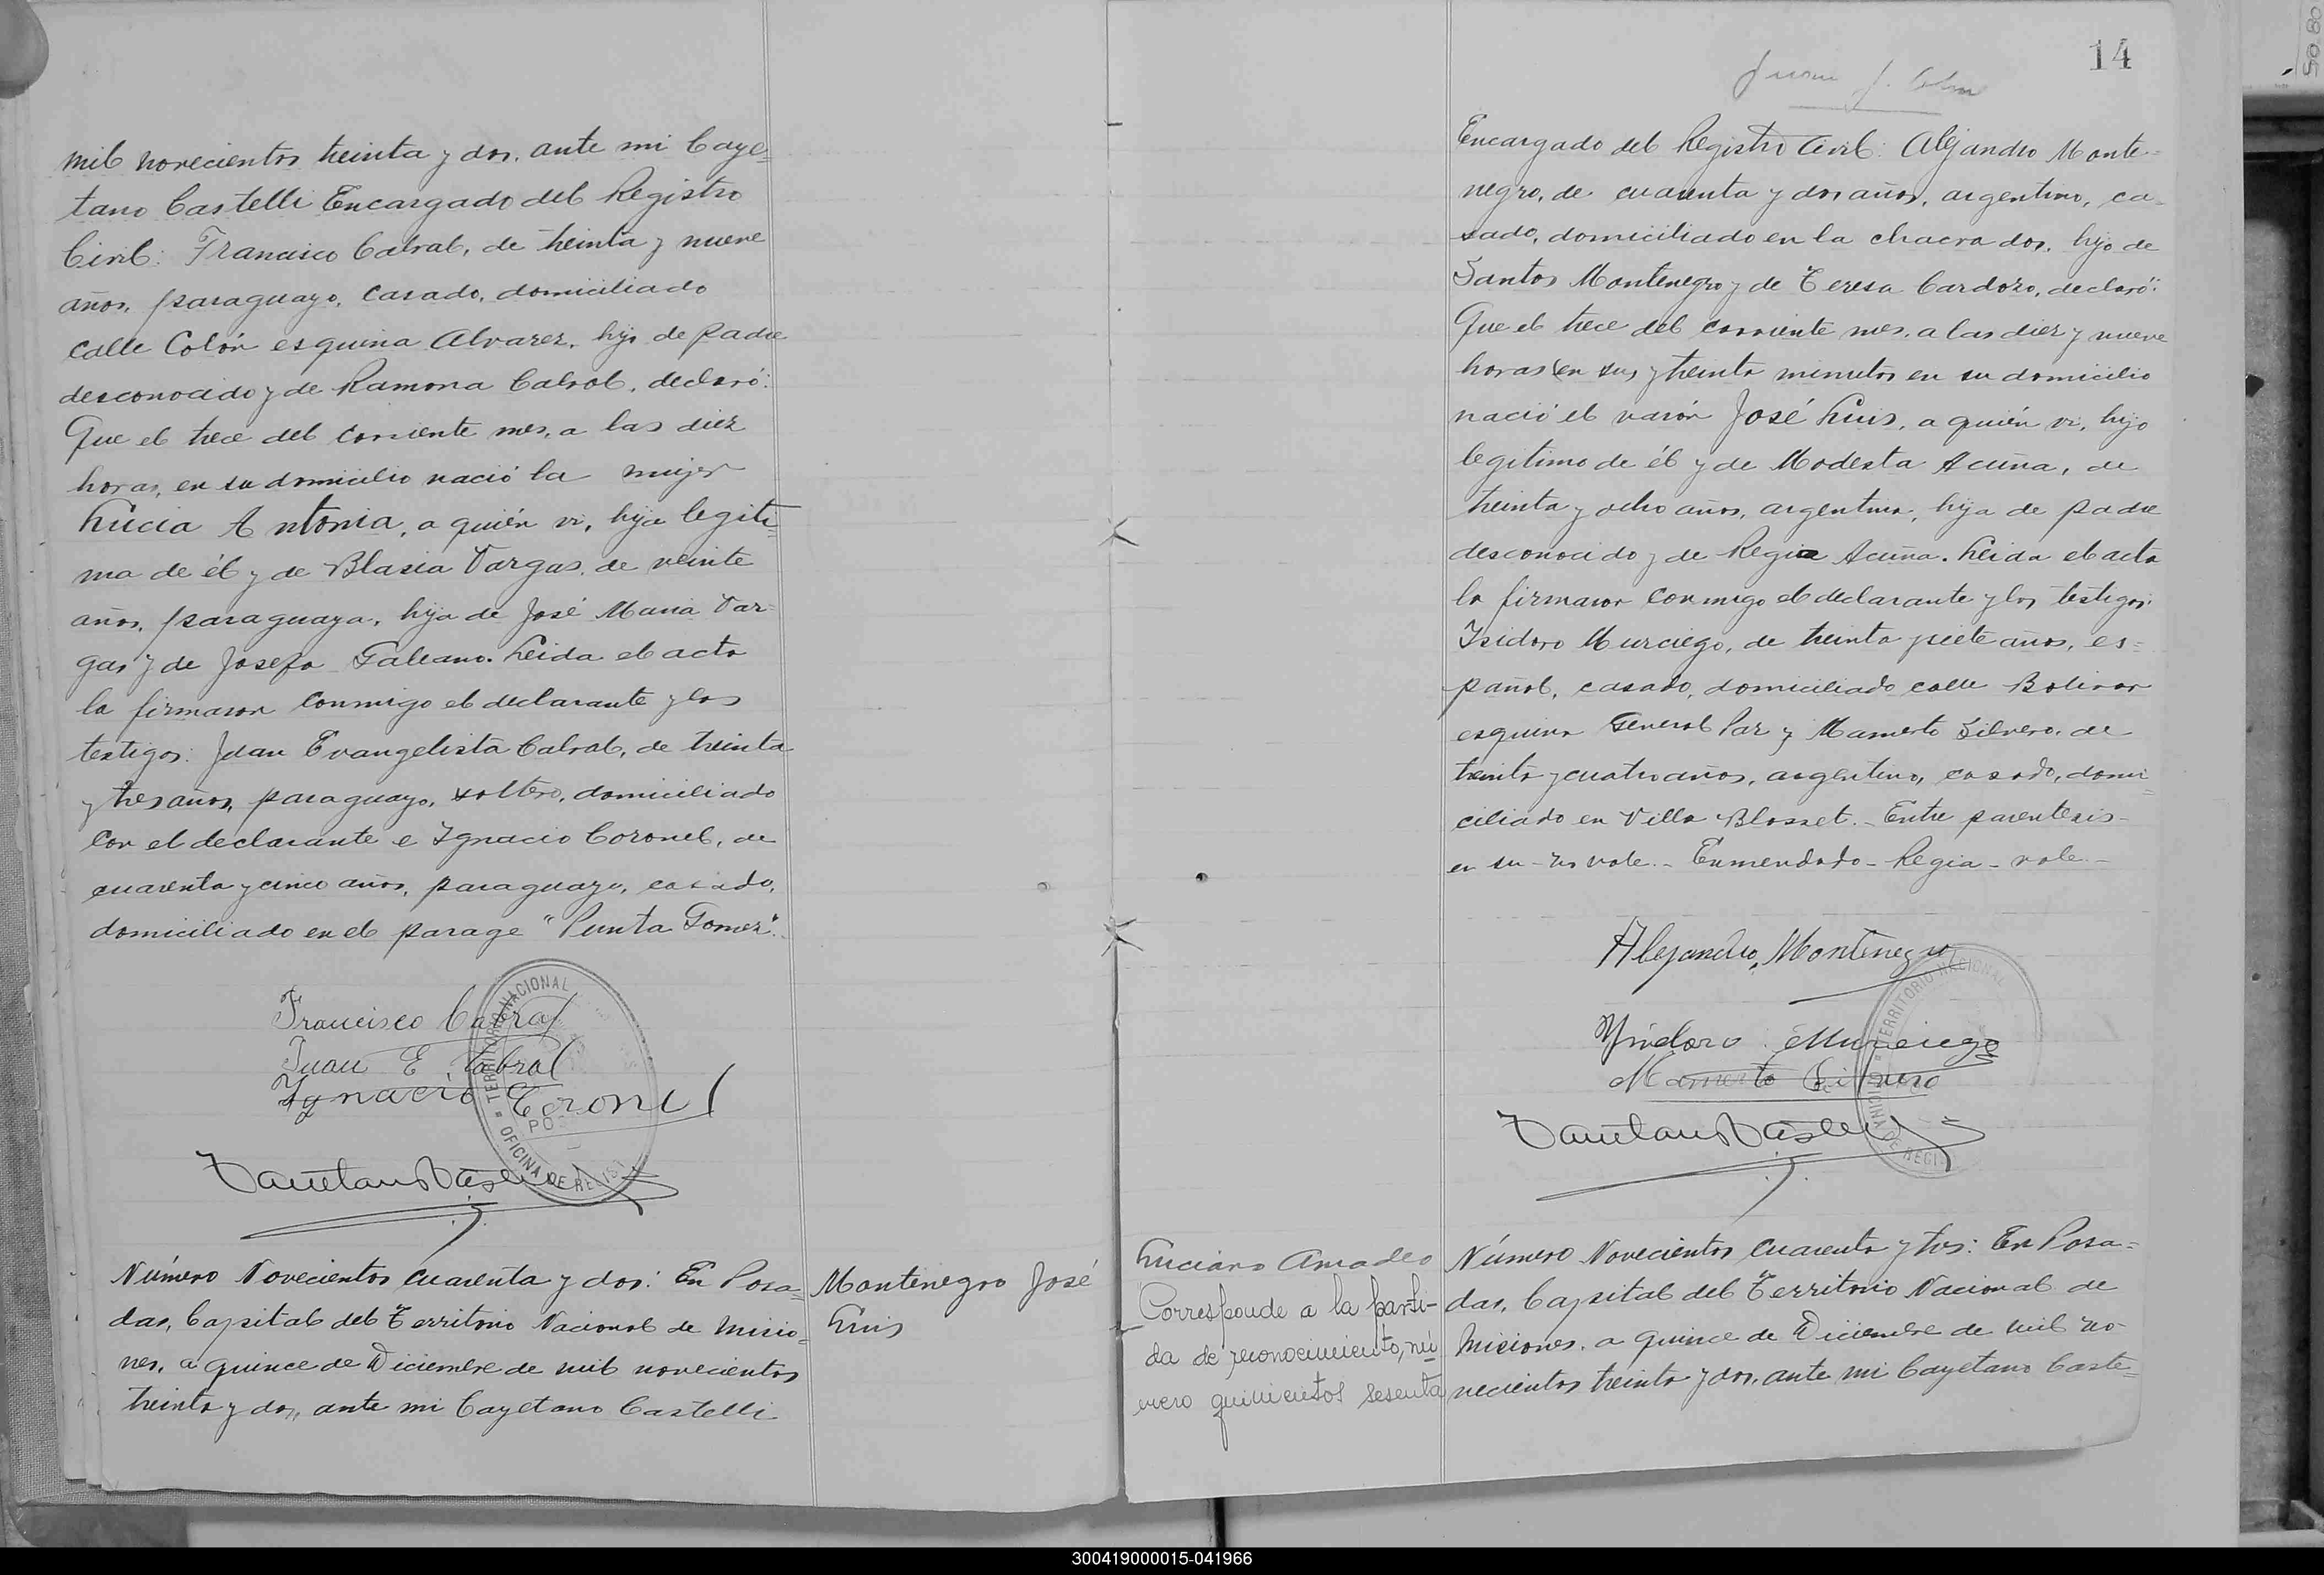 mil novecientos treinta y dos, ante mi Caye=
tano Castelli Encargado del Registro
Civil: Francisco Cabral, de treinta y nueve
años, paraguayo, casado, domiciliado
calle Colón esquina Alvarez, hijo de padre
desconocido y de Ramona Cabral, declaró:
Que el trece del corriente mes, a las diez
horas, en su domicilio nació la mujer
Lucia Antonia, a quién vi, hija legiti=
ma de él y de Blasia Vargas, de veinte
años, paraguaya, hija de José Maria Var=
gas y de Josefa Galeano. Leida el acta
la firmaron conmigo el declarante y los
testigos: Juan Evangelista Cabral, de treinta
y tres años, paraguayo, soltero, domiciliado
con el declarante e Ignacio Coronel, de
cuarenta y cinco años, paraguayo, casado,
domiciliado en el parage "Punta Gomez".
Francisco Cabral
Juan E Cabral
Ignacio Coronel
TERRITORIO NACIONAL
OFICINA DE REGIST
Número Novecientos cuarenta y dos: En Posa=
das, Capital del Territorio Nacional de Misio=
nes, a quince de Diciembre de mil novecientos
treinta y dos, ante mi Cayetano Castelli
Montenegro José
Luis
14
Encargado del Registro Civil: Alejandro Monte=
negro, de cuarenta y dos años, argentino, ca=
sado, domiciliado en la chacra dos, hijo de
Santos Montenegro y de Teresa Cardozo, declaró:
Que el trece del corriente mes, a las diez y nueve
horas (en su) y treinta minutos en su domicilio
nació el varón José Luis, a quién vi, hijo
legitimo de él y de Modesta Acuña, de
treinta y ocho años, argentina, hija de padre
desconocido y de Regia Acuña. Leida el acta
la firmaron conmigo el declarante y los testigos:
Isidoro Murciego, de treinta y siete años, es=
pañol, casado, domiciliado calle Bolivar
esquina General Paz y Mamerto Silvero, de
treinta y cuatro años, argentino, casado, domi=
ciliado en Villa Blosset.- Entre parentesis-
en su - no vale.- Enmendado - Regia - vale.-
Alejandro Montenegro
Ysidoro Murciego
Mamerto Silvero
TERRITORIO NACIONAL
OFICINA DE REGI
Luciano Amadeo
Corresponde a la parti-
da de reconocimiento, nú
mero quinientos sesenta
Número Novecientos cuarenta y tres: En Posa=
das, Capital del Territorio Nacional de
Misiones, a quince de Diciembre de mil no-
vecientos treinta y dos, ante mi Cayetano Caste=
300419000015-041966